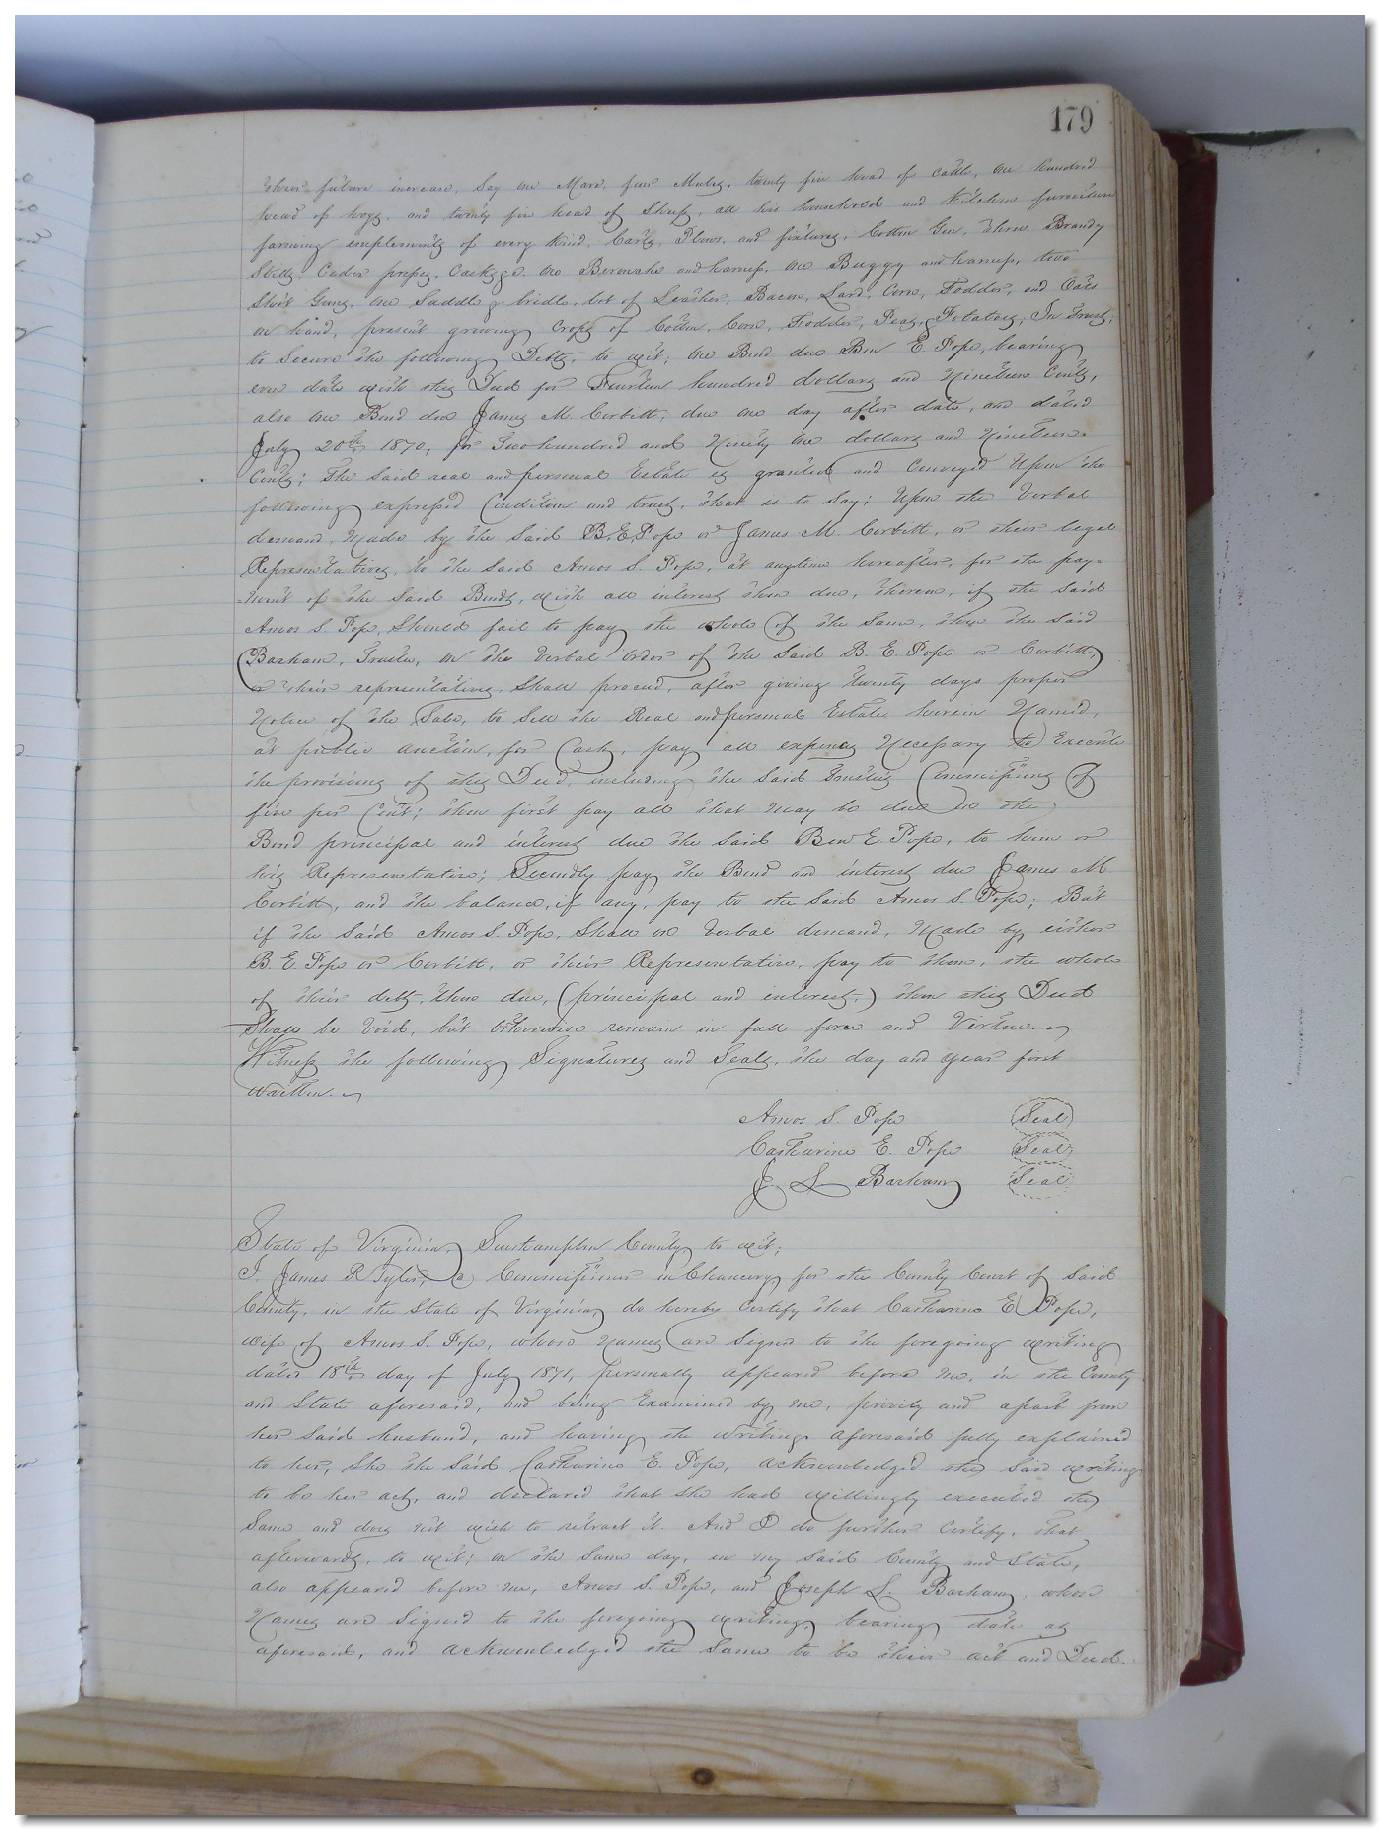 179
their future increase, Say one Mare, four Mules, twenty five head of Cattle, one hundred
head of hogs, and twenty five head of Sheep, all his household and Kitchen furniture
farming implements of every Kind, Carts, Plows, and fixtures, Cotton Gin, three Brandy
Stills, Cider press, Casks &c. one Barouche and harness, one Buggy and harness, two
Shot Guns, one Saddle & bridle, lot of Leather, Bacon, Lard, Corn, Fodder, and Oats
on hand, present growing Crops of Cotton, Corn, Fodder, Peas, & Potatoes; In Trust,
to Secure the following Debts, to wit; one Bond due Ben E. Pope, bearing
even date with this Deed for Fourteen hundred dollars and Nineteen Cents,
also one Bond due James M. Corbitt, due one day after date, and dated
July 20th 1870, for Two hundred and Ninety one dollars and Nineteen
Cents; The Said real and personal Estate is granted and Conveyed Upon the
following expressed Condition and trust, that is to Say; Upon the Verbal
demand, Made by the Said B. E. Pope or James M. Corbitt, or their legal
Representatives, to the Said Amos S. Pope, at anytime hereafter, for the pay=
=ment of the Said Bonds, with all interest then due, thereon, if the Said
Amos S. Pope, Should fail to pay the whole of the Same, then the Said
Barham, Trustee, on the Verbal order of the Said B. E. Pope or Corbitt,
or their representatives, Shall proceed, after giving twenty days proper
Notice of the Sale, to Sell the Real and personal Estate herein Named,
at public auction, for Cash, pay all expenses Necessary to Execute
the provisions of this Deed, including the Said trustees Commissions of
five per Cent; then first pay all that may be due on the
Bond principal and interest due the Said Ben E. Pope, to him or
his Representative; Secondly pay the Bond and interest due James M
Corbitt, and the balance, if any, pay to the Said Amos S. Pope; But
if the Said Amos S. Pope, Shall on Verbal demand, Made by either
B. E. Pope or Corbitt, or their Representative, pay to them, the whole
of their debts, then due, (principal and interest,) then this Deed
Shall be Void, but otherwise remain in full force and Virtue.
Witness the following Signatures and Seals, the day and year first
written.
Amos S. Pope Seal
Catharine E. Pope Seal
J. L. Barham Seal
State of Virginia, Southampton County to wit;
I, James R Tyler, a Commissioner in Chancery for the County Court of Said
County, in the State of Virginia, do hereby Certify that Catharine E Pope,
wife of Amos S. Pope, whose Names are Signed to the foregoing writing
dated 18th day of July 1871, personally appeared before me, in the County
and State aforesaid, and being Examined by me, privily and apart from
her Said husband, and having the writing aforesaid fully explained
to her, She the Said Catharine E. Pope, acknowledged the Said writing
to be her act, and declared that She had willingly executed the
Same and does not wish to retract it. And I do further Certify, that
afterwards, to wit; on the Same day, in my Said County and State,
also appeared before me, Amos S. Pope, and Joseph L. Barham, whose
Names are Signed to the foregoing writing, bearing date as
aforesaid, and acknowledged the Same to be their act and Deed.